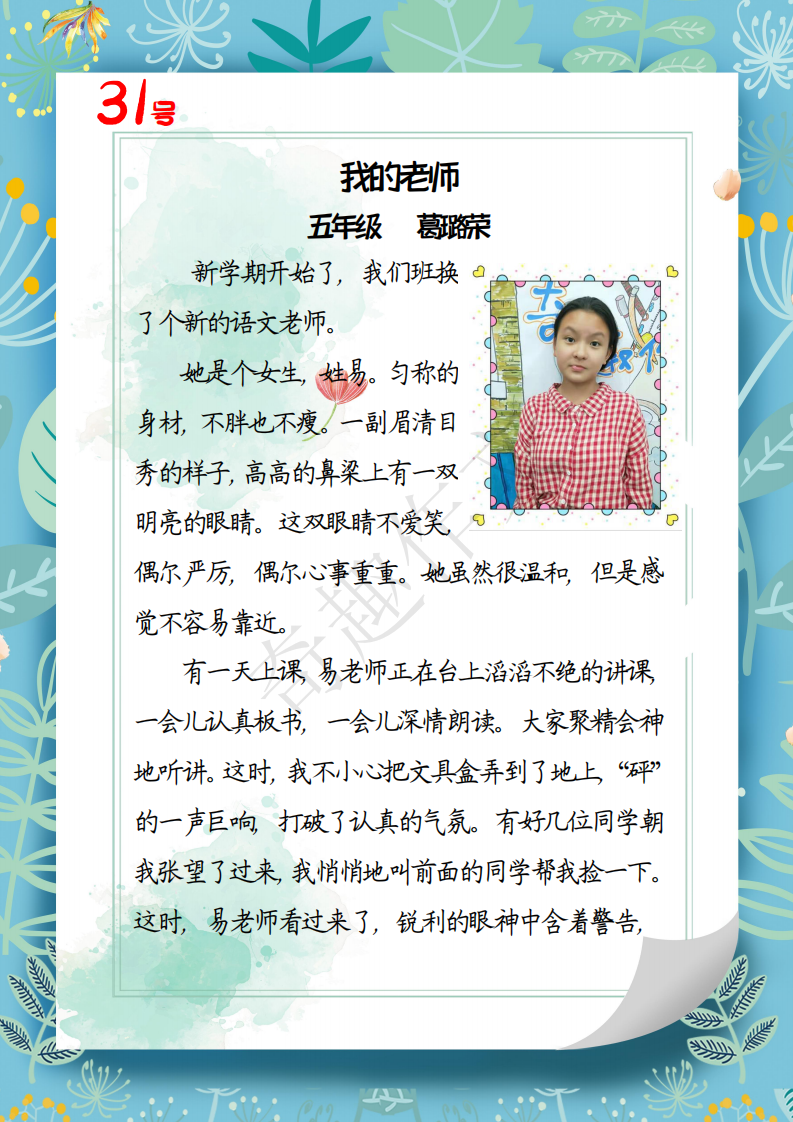 31号
我的老师
五年级 葛璐荣
新学期开始了,我们班换
了个新的语文老师。
她是个女生,姓易。匀称的
身材,不胖也不瘦。一副眉清目
秀的样子,高高的鼻梁上有一双
明亮的眼睛。这双眼睛不爱笑,
偶尔严厉,偶尔心事重重。她虽然很温和,但是感
觉不容易靠近。
有一天上课,易老师正在台上滔滔不绝的讲课,
一会儿认真板书,一会儿深情朗读。大家聚精会神
地听讲。这时,我不小心把文具盒弄到了地上,“砰”
的一声巨响,打破了认真的气氛。有好几位同学朝
我张望了过来,我悄悄地叫前面的同学帮我捡一下。
这时,易老师看过来了,锐利的眼神中含着警告,
奇趣作